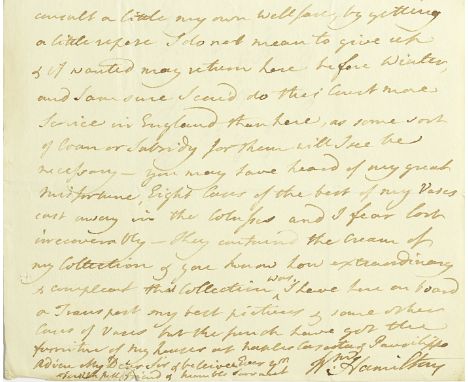 consult a little my own wellfare, by getting
a little repose I do not mean to give up
& if wanted may return here before Winter,
and I am sure I coud do this Court more
Service in England than here, as some sort
of Loan or Subsidy for them will I see be
necessary — you may have heard of my great
misfortune, Eight Cases of the best of my Vases
cast away in the Colossus and I fear lost
irrecoverably — they contained the Cream of
my Collection & you know how extraordinary
& compleat this Collection was, I have here on board
a Transport my best pictures & some other
Cases of Vases but the french have got the
furniture of my houses at Naples Caserta & Pausilipo
adieu My Dear Sir & believe Ever yr
& humble Servant
Wm Hamilton